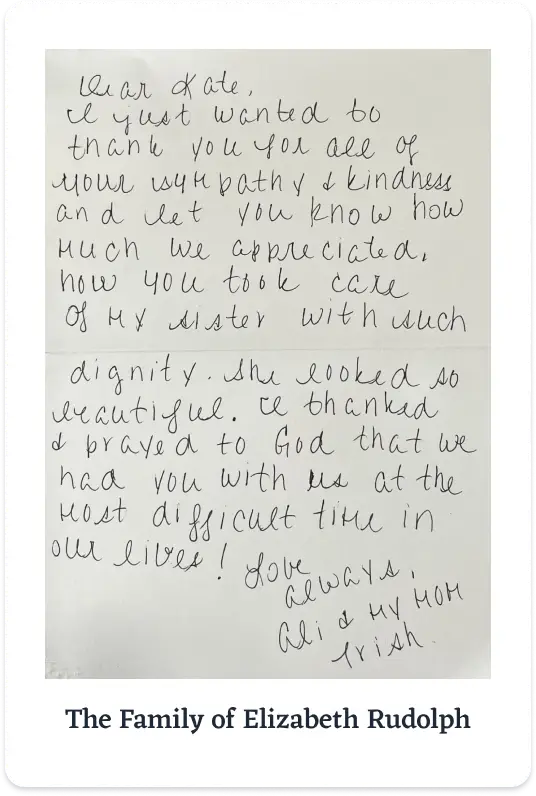 Dear Kate,
I just wanted to
thank you for all of
your sympathy & kindness
and let you know how
much we appreciated,
how you took care
of my sister with such
dignity. She looked so
beautiful. I thanked
& prayed to God that we
had you with us at the
most difficult time in
our lives! Love
always,
Ali & my mom
Trish.
The Family of Elizabeth Rudolph